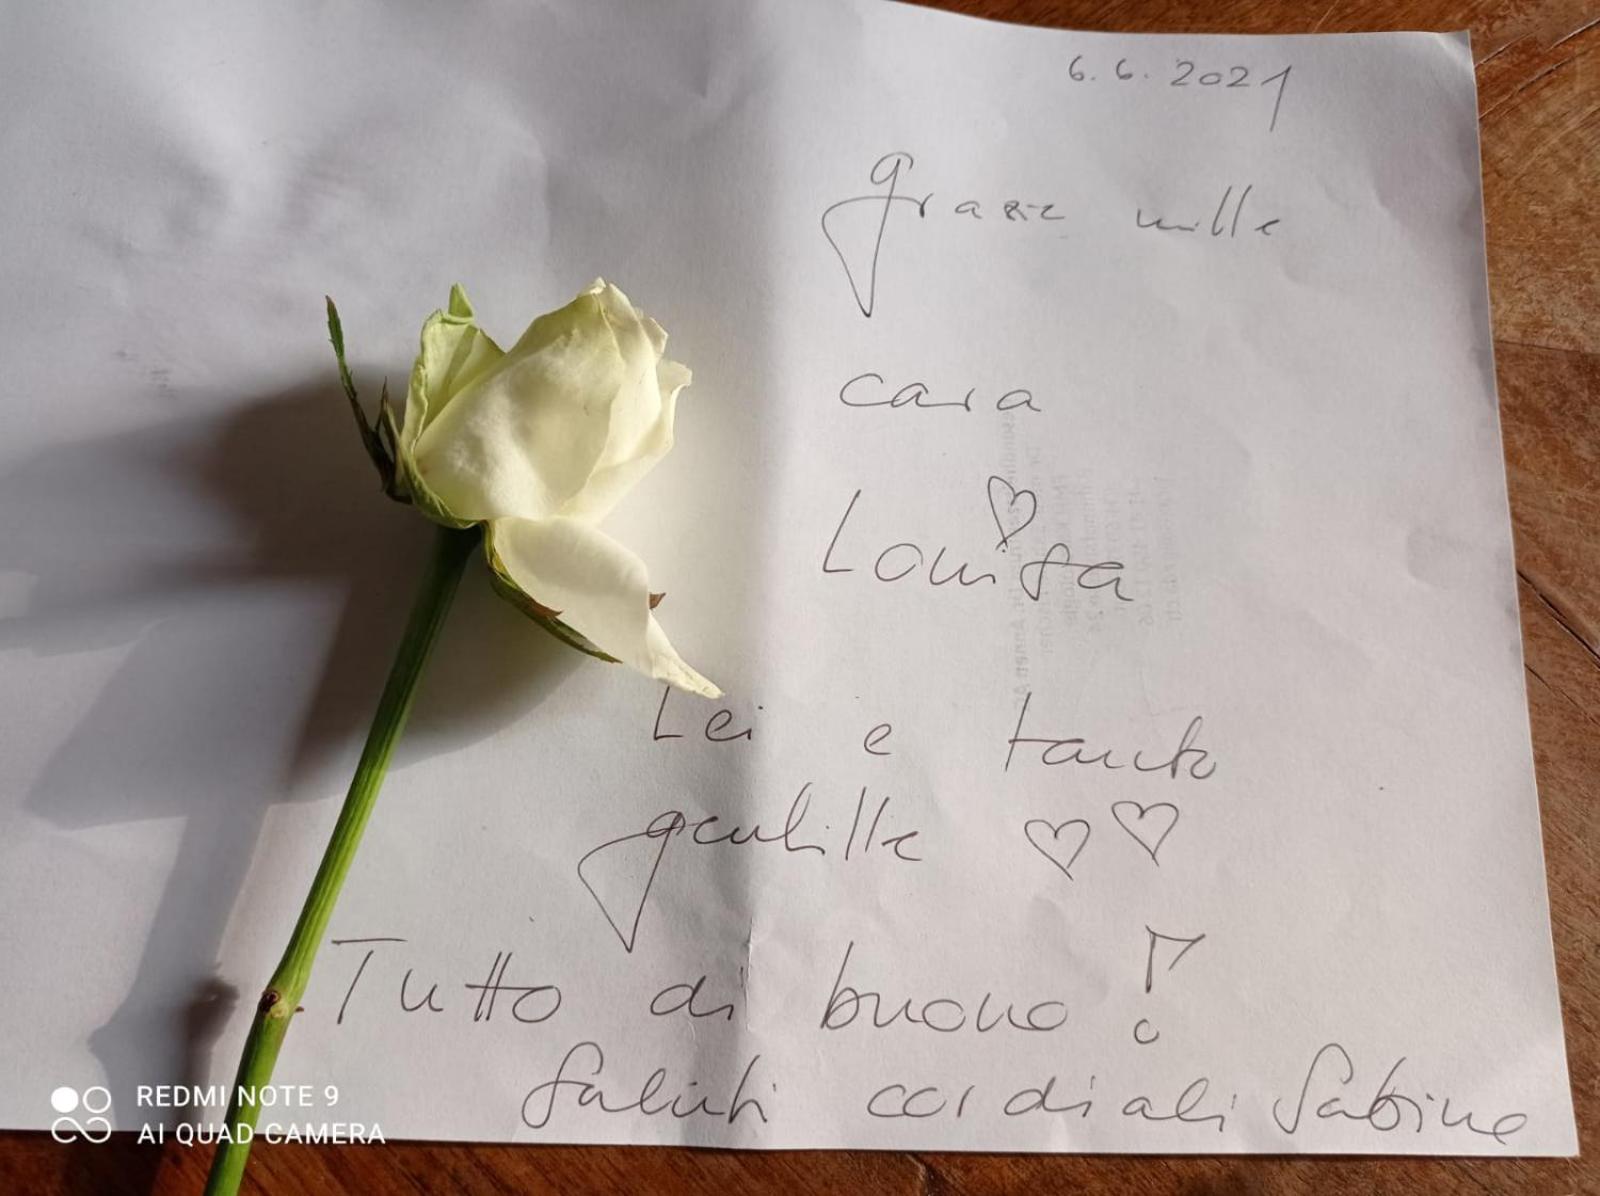 6. 6. 2021
grazie mille
cara
Louisa
Lei e tanto
gentille
Tutto di buono!
Saluti cordiali Sabine
REDMI NOTE 9
AI QUAD CAMERA